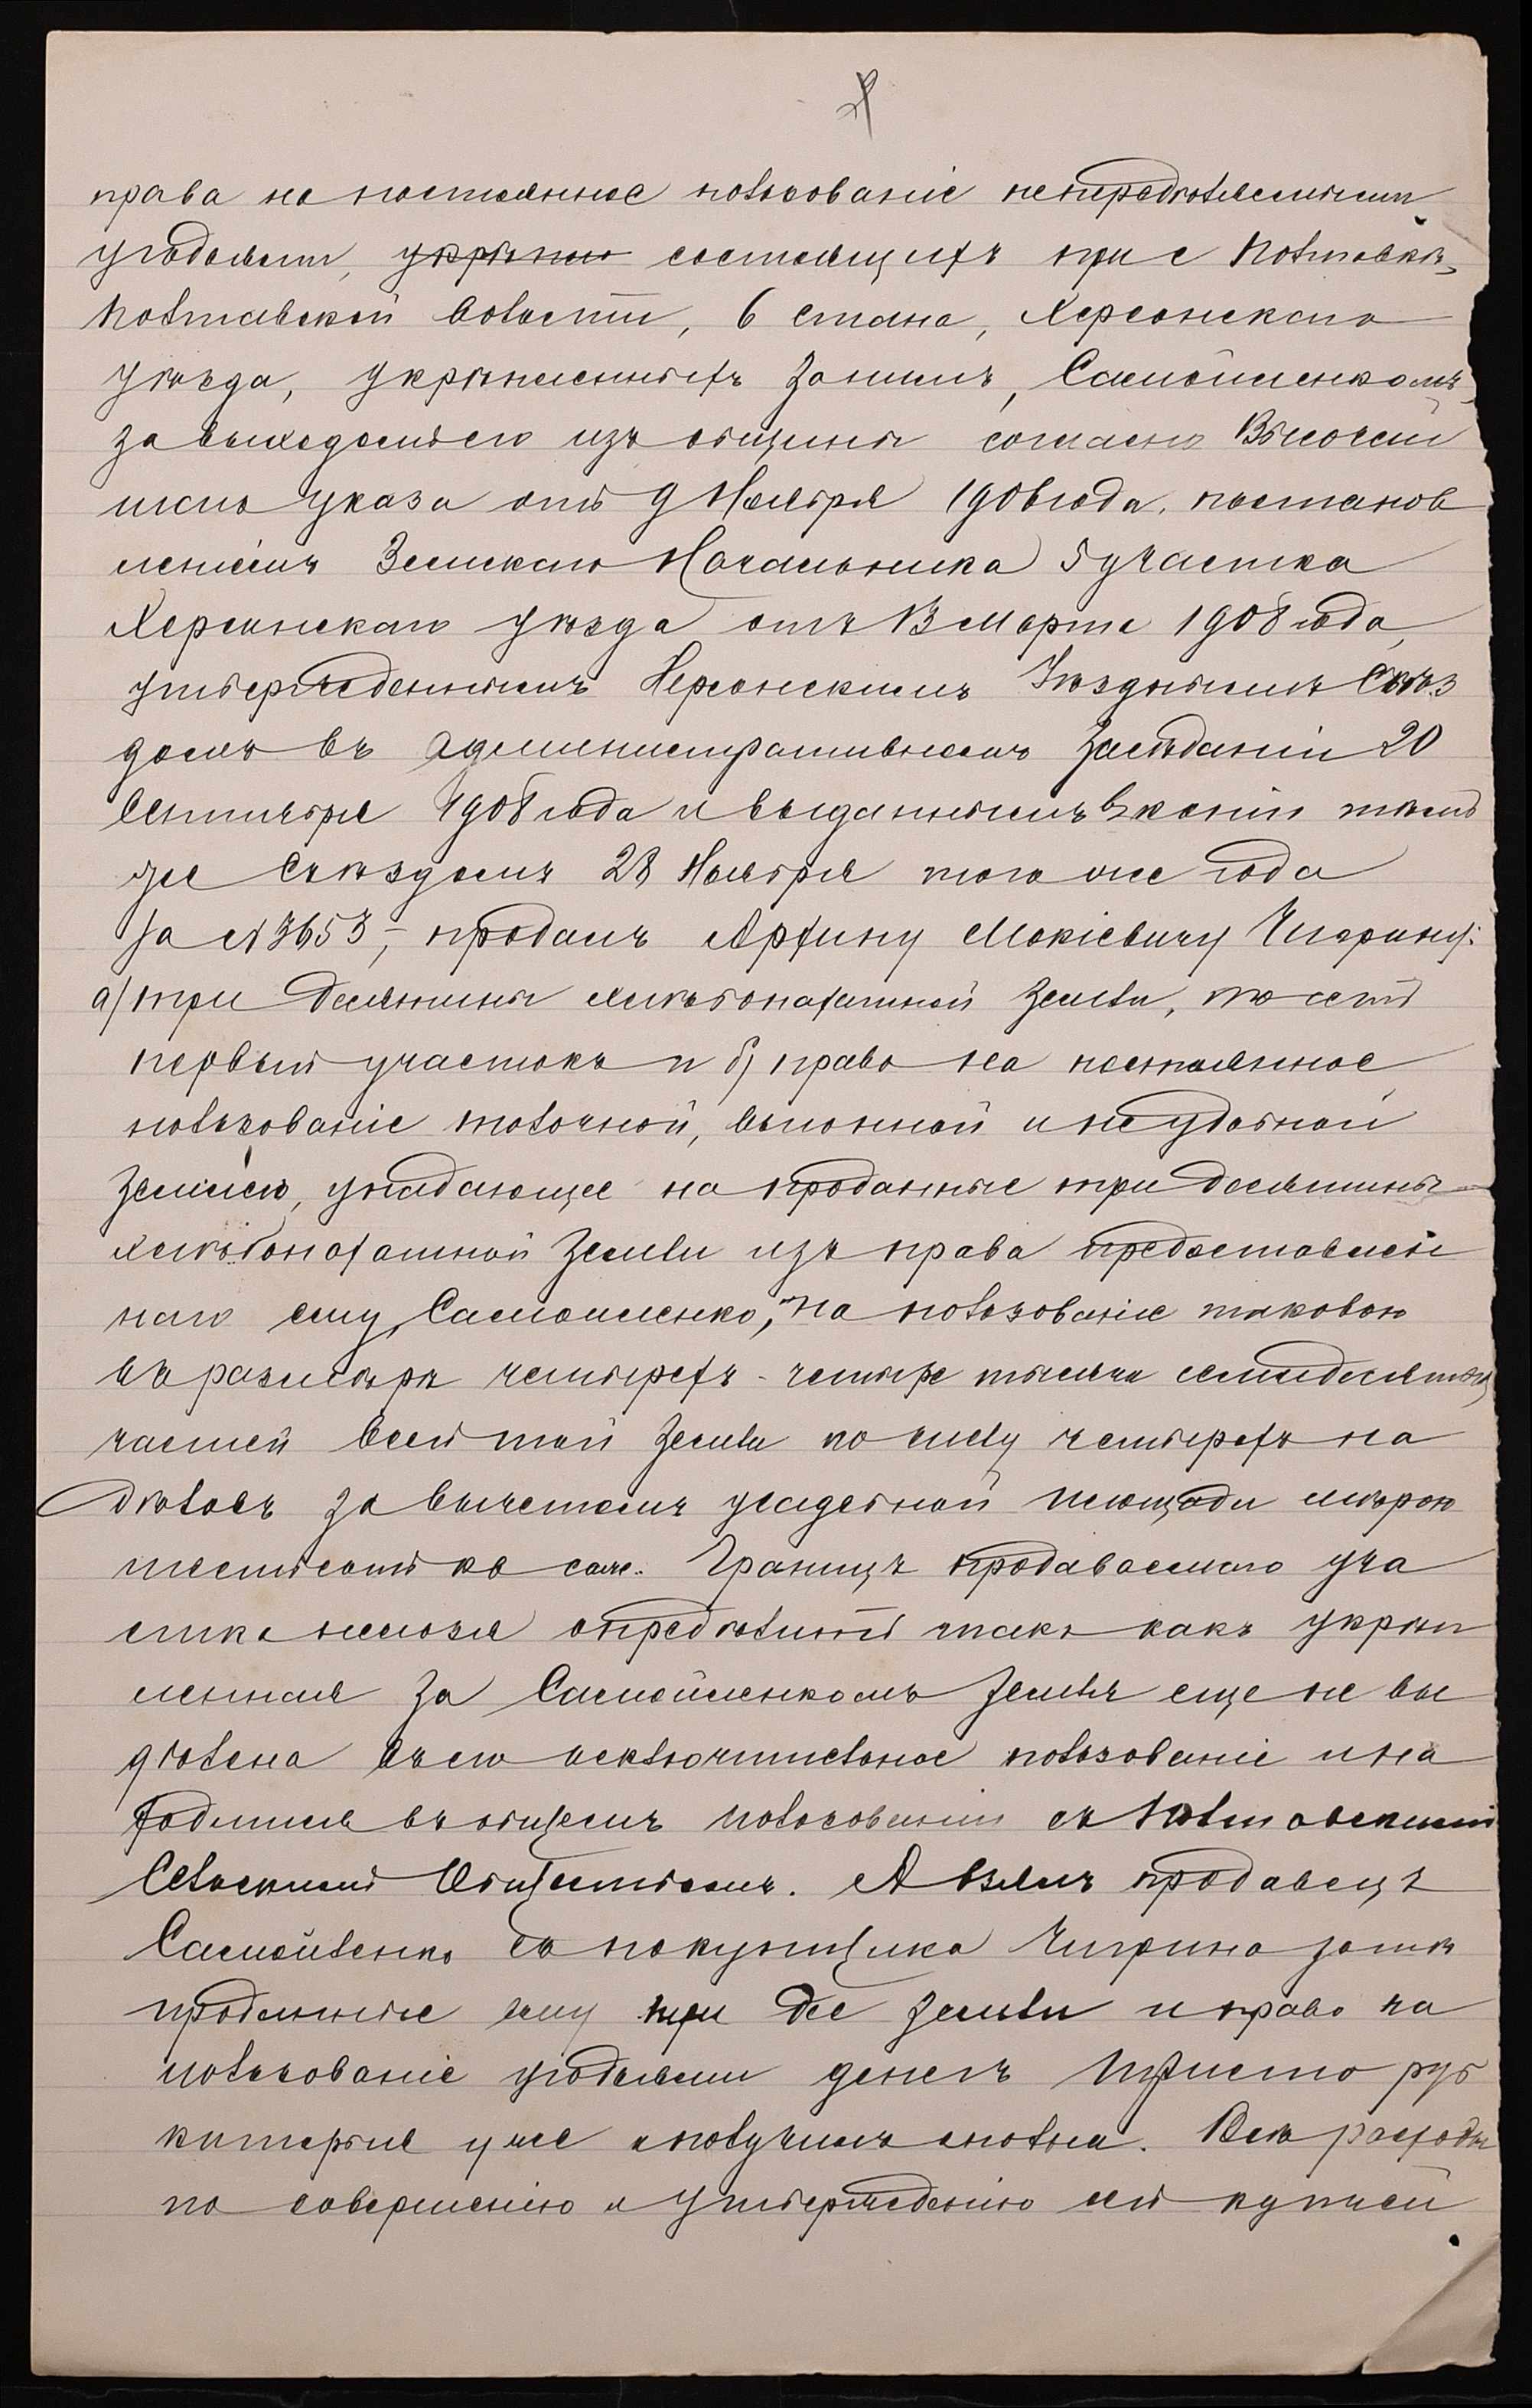 права на постоянное пользованіе непредѣляемыми
угодьями, укрѣпно состоящихъ при с Полтавкѣ,
Полтавской волости, 6 стана, Херсонскаго
уѣзда, укрѣпленныхъ за нимъ, Самойленкомъ,
за выходомъ его изъ общины согласно Высочай
шаго указа отъ 9 Ноября 1906 года, постанов
леніемъ Земскаго Начальника 5 участка
Херсонскаго уѣзда отъ 13 Марта 1908 года,
утвержденнымъ Херсонскимъ Уѣзднымъ Съѣз
домъ въ административномъ засѣданіи 20
Сентября 1908 года и выданнымъ въ копіи тѣмъ
же Съѣздомъ 28 Ноября того же года
за № 3653, – продалъ Архипу Мокіевичу Чигрину:
а) три десятины хлѣбопахатной земли, то есть
первый участокъ и б) право на постоянное
пользованіе толочной, выгонной и неудобной
землей, упадающее на проданные три десятины
хлѣбопахатной земли изъ права предоставлен
наго ему, Самойленко, на пользованіе таковою
въ размѣрѣ четырехъ - четыре тысячи семидесятыхъ
частей всей той земли по числу четырехъ на
дѣловъ за вычетомъ усадебной площади мѣрою
шестьсотъ кв саж. Границъ продаваемаго уча
стка нельзя опредѣлить такъ какъ укрѣп
ленная за Самойленкомъ земля еще не вы
дѣлена въ его исключительное пользованіе и на
ходится въ общемъ пользованіи съ Полтавскимъ
Сельскимъ Обществомъ. А взялъ продавецъ
Самойленко съ покупщика Чигрина за тѣ
проданные ему три дес земли и право на
пользованіе угодьями денегъ триста руб
которые уже и получилъ сполна. Всѣ расходы
по совершенію и утвержденію сей купчей